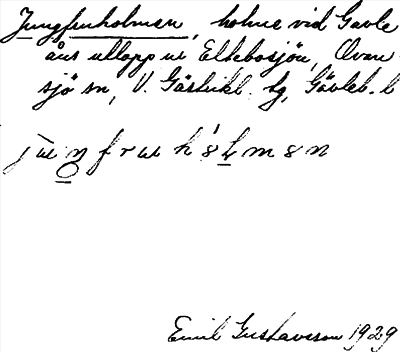 Jungfruholmen, holme vid Gavle
åns utlopp ur Elkebosjön, Ovan-
sjö sn, V. Gästrikl. tg, Gävleb. l
Emil Gustavsson 1929